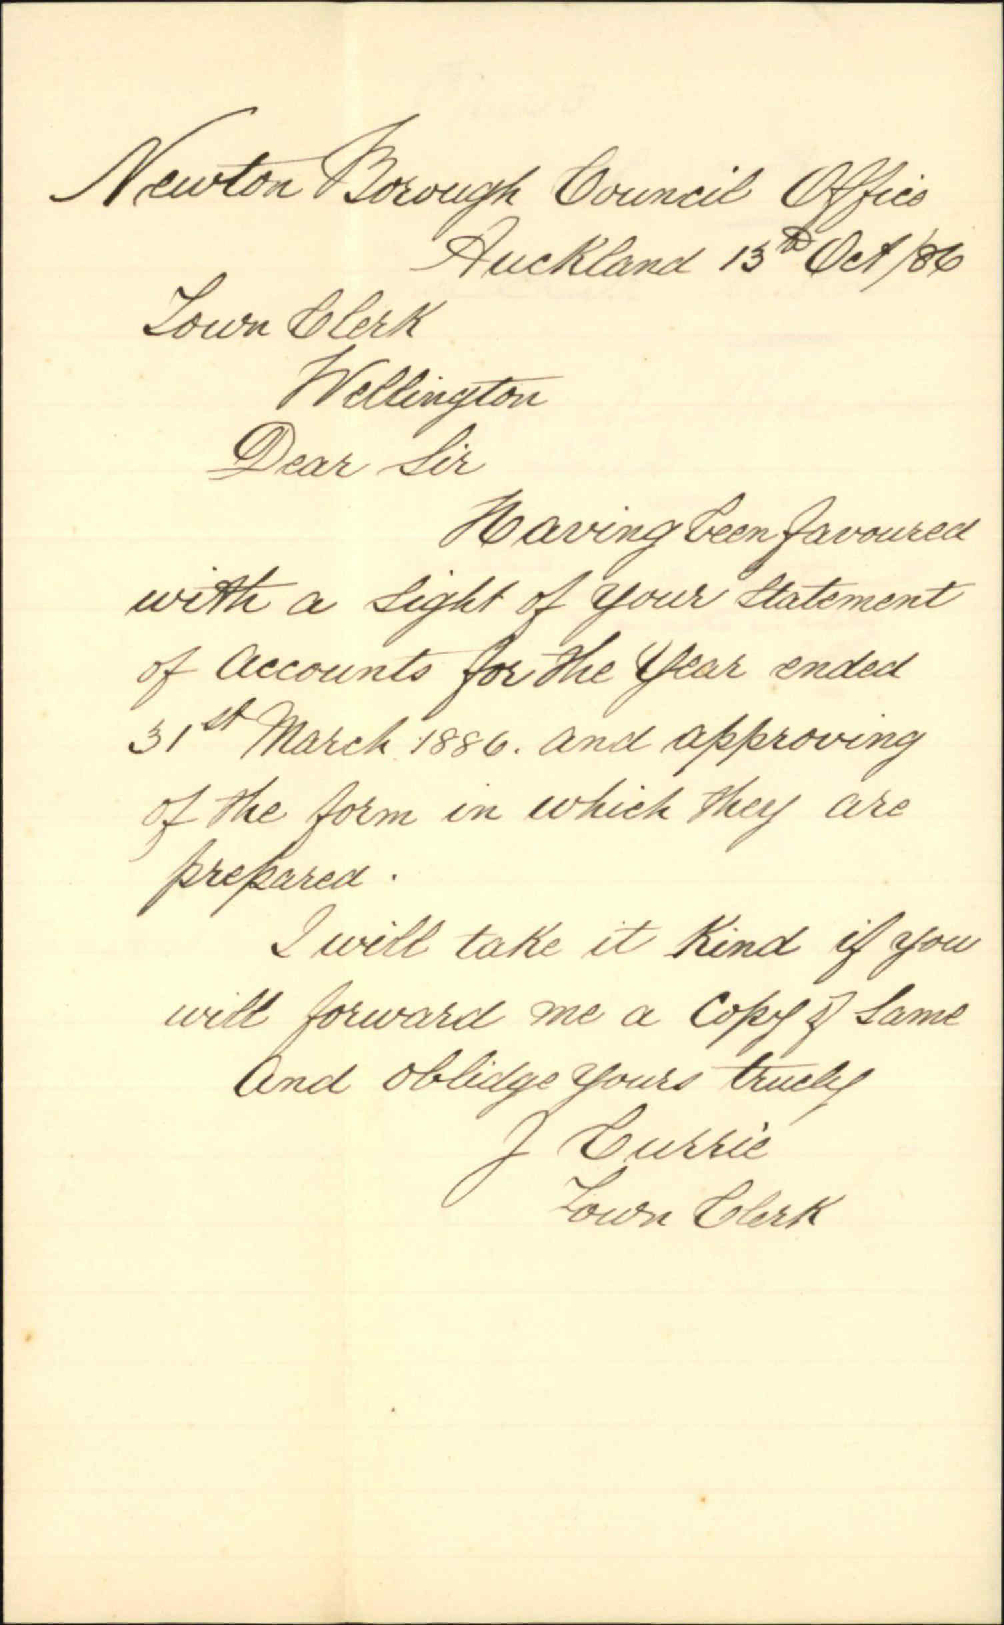 Newton Borough Council Office
Auckland 13th Oct /86
Town Clerk
Wellington
Dear Sir
Having been favoured
with a sight of your Statement
of Accounts for the Year ended
31st March 1886. and approving
of the form in which they are
prepared.
I will take it Kind if you
will forward me a Copy of Same
And oblidge yours truely
J Currie
Town Clerk